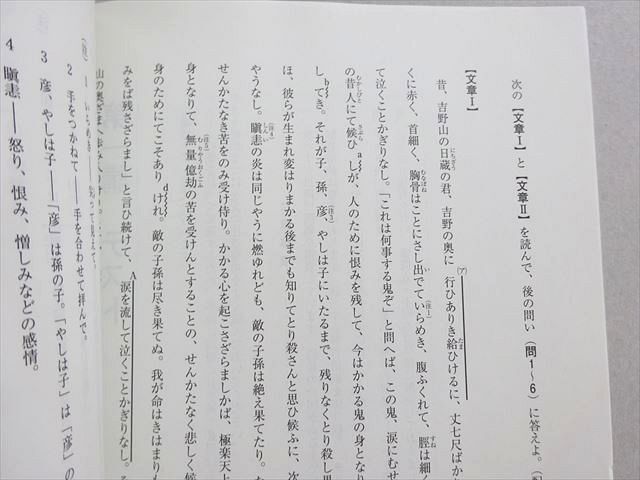 次の【文章Ⅰ】と【文章Ⅱ】を読んで、後の問い（問1～6）に答えよ。
【文章Ⅰ】
昔、吉野山の日蔵の君、吉野の奥に行ひありき給ひけるに、丈七尺ばか
くに赤く、首細く、胸骨はことにさし出でていらめき、腹ふくれて、脛は細く
て泣くことかぎりなし。「これは何事する鬼ぞ」と問へば、この鬼、涙にむせ
の昔人にて候ひしが、人のために恨みを残して、今はかかる鬼の身となり
してき。それが子、孫、彦、やしは子にいたるまで、残りなくとり殺し果
ほ、彼らが生まれ変はりまかる後までも知りてとり殺さんと思ひ候ふに、次
やうなし。瞋恚の炎は同じやうに燃ゆれども、敵の子孫は絶え果てたり。
せんかたなき苦をのみ受け侍り。かかる心を起こさざらましかば、極楽天上
身となりて、無量億劫の苦を受けんとすることの、せんかたなく悲しく候
身のためにてこそありけれ。敵の子孫は尽き果てぬ。我が命はきはまりも
みをば残さざらまし」と言ひ続けて、涙を流して泣くことかぎりなし。
2 手をつかねて――手を合わせて拝んで。
3 彦、やしは子――「彦」は孫の子。「やしは子」は「彦」の
4 瞋恚――怒り、恨み、憎しみなどの感情。